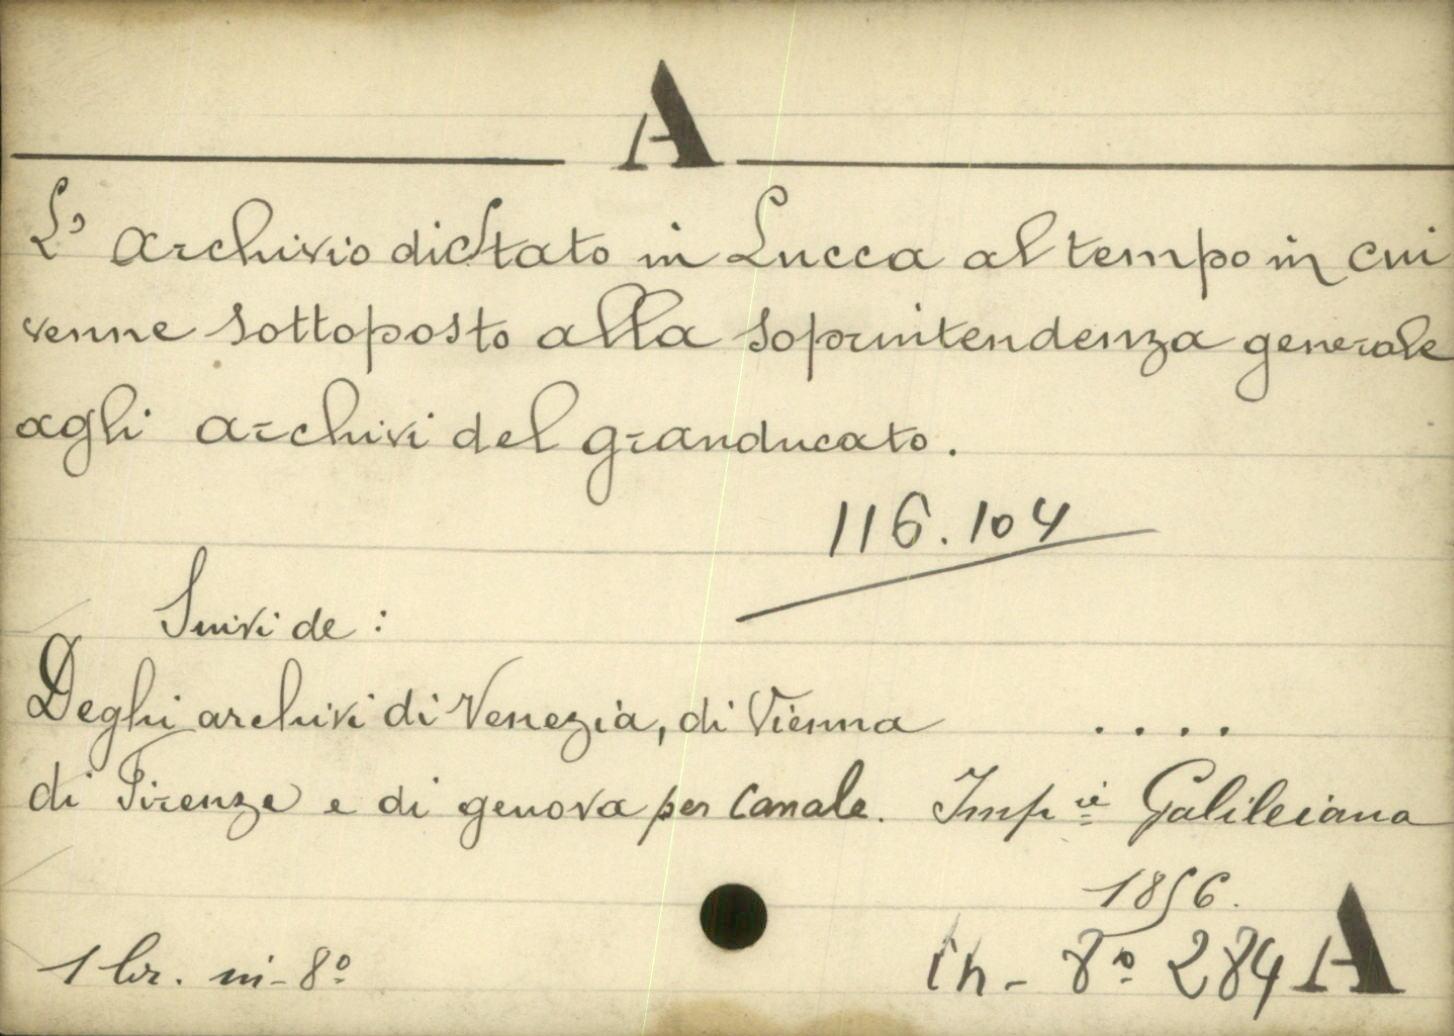 A
L' Archivio di Stato in Lucca al tempo in cui
venne sottoposto alla soprintendenza generale
agli archivi del granducato.
116.104
Suivi de :
Deghi archivi di Venezia, di Vienna ....
di Firenze e di genova per Canale. Imp ie Galileiana
1856.
1 br. in-8º in-8º 284 A